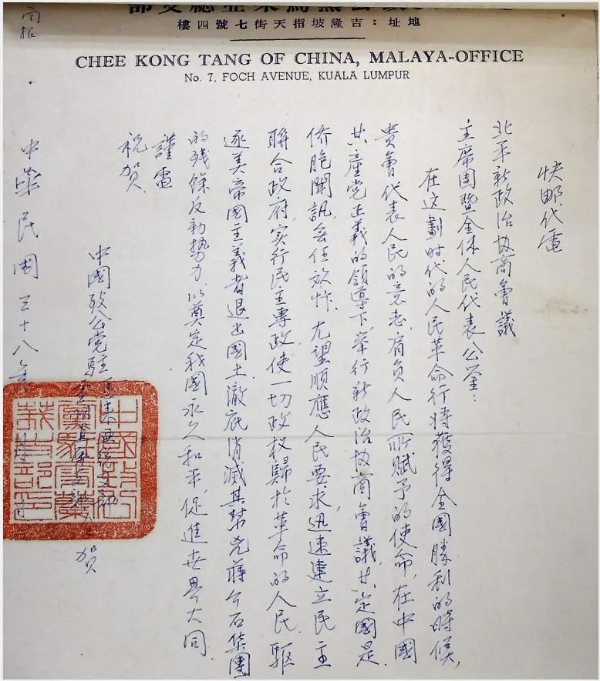 地址：吉隆坡指天街七號四樓
CHEE KONG TANG OF CHINA, MALAYA-OFFICE
No. 7, FOCH AVENUE, KUALA LUMPUR
快郵代電
北平新政治协商會議
主席團暨全体人民代表公鑒：
在这劃时代的人民革命行將獲得全國勝利的時候，
貴會代表人民的意志，肩負人民所賦予的使命，在中國
共產党正義的領導下舉行新政治协商會議，共定國是，
侨胞聞訊，任忭，尤望順應人民要求，迅速建立民主
聯合政府，实行民主專政，使一切政权歸於革命的人民，驅
逐美帝國主義者退出國土，澈底消滅其帮兇蔣介石集團
的残餘反動勢力，以奠定我國永久和平，促進世界大同．
謹電
祝賀．
中國致公党駐馬來亞 賀
中華民國三十八年